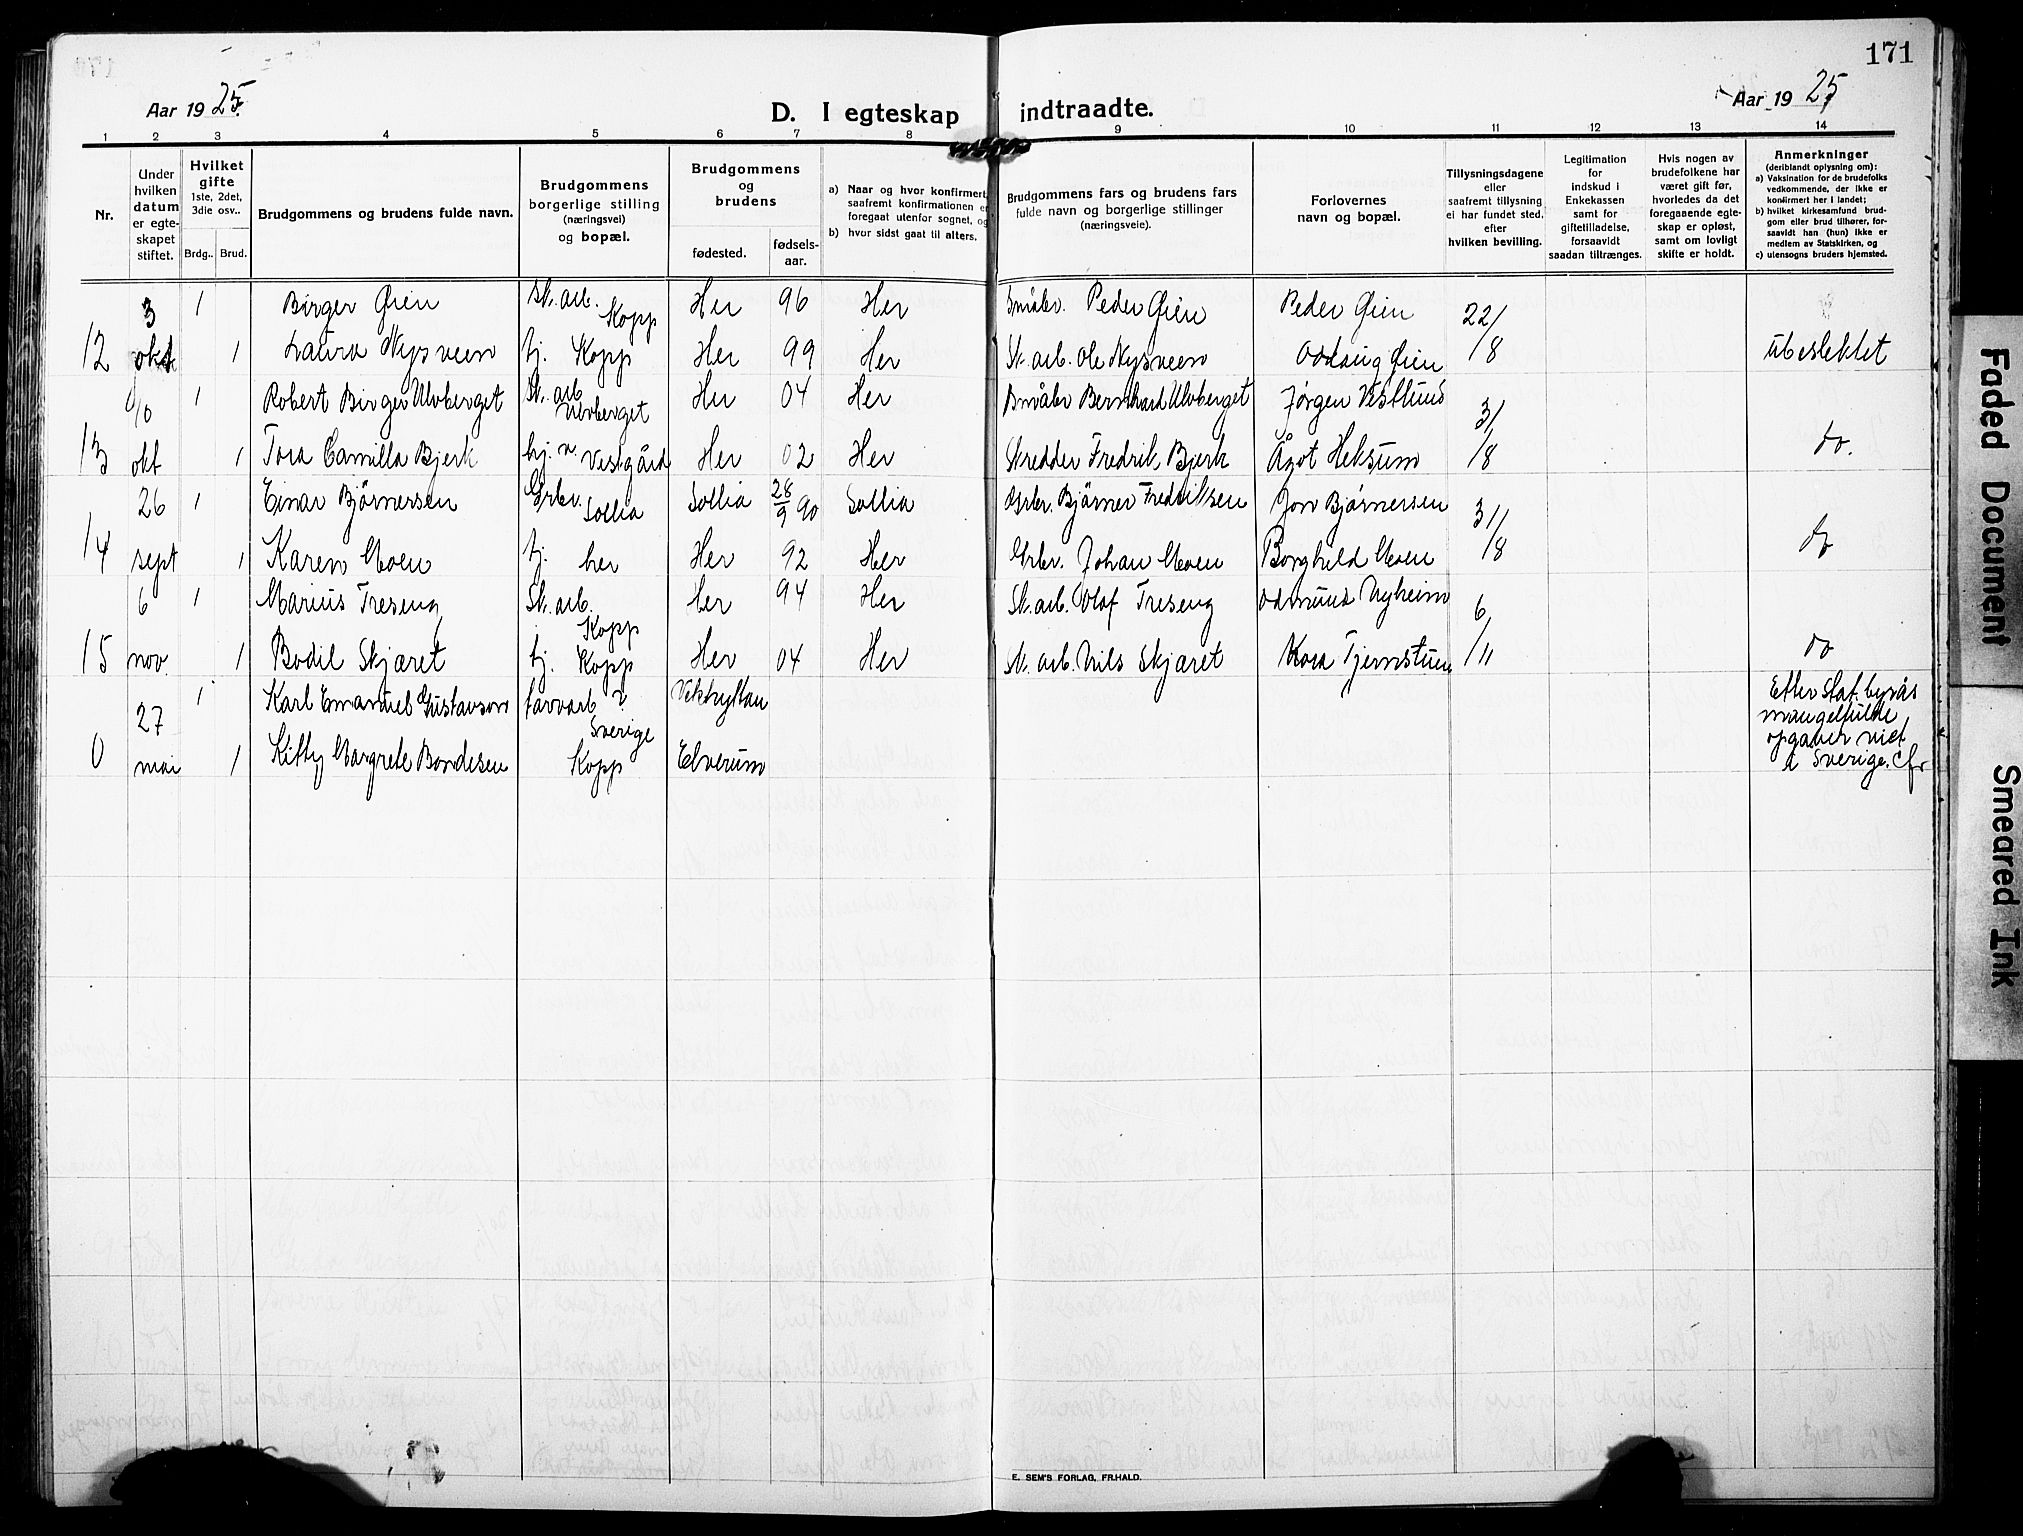 171
Aar 1925. D. I egteskap indtraadte. Aar 1925
1 2 3 4 5 6 7 8 9 10 11 12 13 14
Nr.
Under hvilken datum er egteskapet stiftet.
Hvilket gifte 1ste, 2det, 3die osv.. Brdg.. Brud.
Brudgommens og brudens fulde navn.
Brudgommens borgerlige stilling (næringsvei) og bopæl.
Brudgommens og brudens fødested. fødselsaar.
a) Naar og hvor konfirmert, saafremt konfirmationen er foregaat utenfor sognet, og
b) hvor sidst gaat til alters.
Brudgommens fars og brudens fars fulde navn og borgerlige stillinger (næringsveie).
Forlovernes navn og bopæl.
Tillysningsdagene eller saafremt tillysning ei har fundet sted, efter hvilken bevilling.
Legitimation for indskud i Enkekassen samt for giftetilladelse, forsaavidt saadan tiltrænges.
Hvis nogen av brudefolkene har været gift før, hvorledes da det foregaaende egteskap er opløst, samt om lovligt skifte er holdt.
Anmerkninger (deriblandt oplysning om):
a) Vaksination for de brudefolks vedkommende, der ikke er konfirmert her i landet;
b) hvilket kirkesamfund brudgom eller brud tilhører, forsaavidt han (hun) ikke er medlem av Statskirken, og
c) utensogns bruders hjemsted.
3 1 Birger Øien Sk. arb. Kopp Her 96 Her Småbr. Peder Øien Peder Øien 22/
12 okt 1 Laura Nysveen hj. Kopp Her 99 Her Sk. arb. Ole Nysveen Oddlaug Øien /8 ubeslektet
10 1 Robert Birger Ulvberget Sk. arb Ulvberget Her 04 Her Småbr Bernhard Ulvberget Jørgen Vestlund 3/
13 okt 1 Tora Camilla Bjerk hj. Vestgård Her 02 Her Skredder Fredrik Bjerk Ågot Heksum /8 do.
26 1 Einar Bjørnersen Grbr. Sollia Sollia 28/9 90 Sollia Grbr. Bjørner Fredriksen Jon Bjørnersen 31/
14 sept 1 Karen Moen hj. her Her 92 Her Grbr. Johan Moen Borghild Moen /8 do
6 1 Marius Treseng Sk. arb. Kopp Her 94 Her Sk. arb. Olof Treseng Odmund Nyheim 6
15 nov. 1 Bodil Skjæret hj. Kopp Her 04 Her Sk. arb. Nils Skjæret Kora Tjernstuen /11 do
27 1 Karl Emanuel Gustavson ? Sverige Efter Stat. byrås
mangelfulde
opgaver viet
0 mai 1 Kitty Margrete Bondesen Kopp Elverum i Sverige. Cfr
E. SEM'S FORLAG, FR.HALD.
Faded Document
Smeared Ink